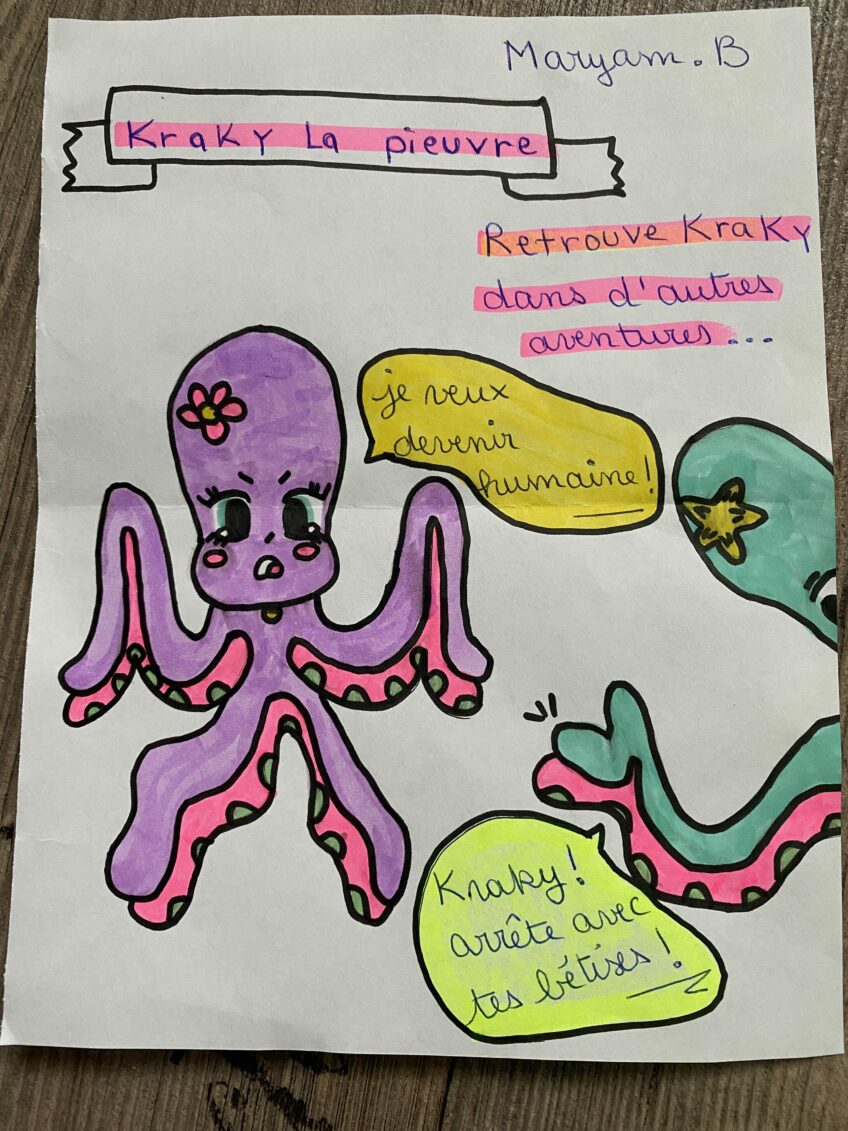 Maryam.B
Kraky La pieuvre
Retrouve Kraky
dans d'autres
aventures...
je veux
devenir
humaine!
Kraky!
arrête avec
tes bétises!